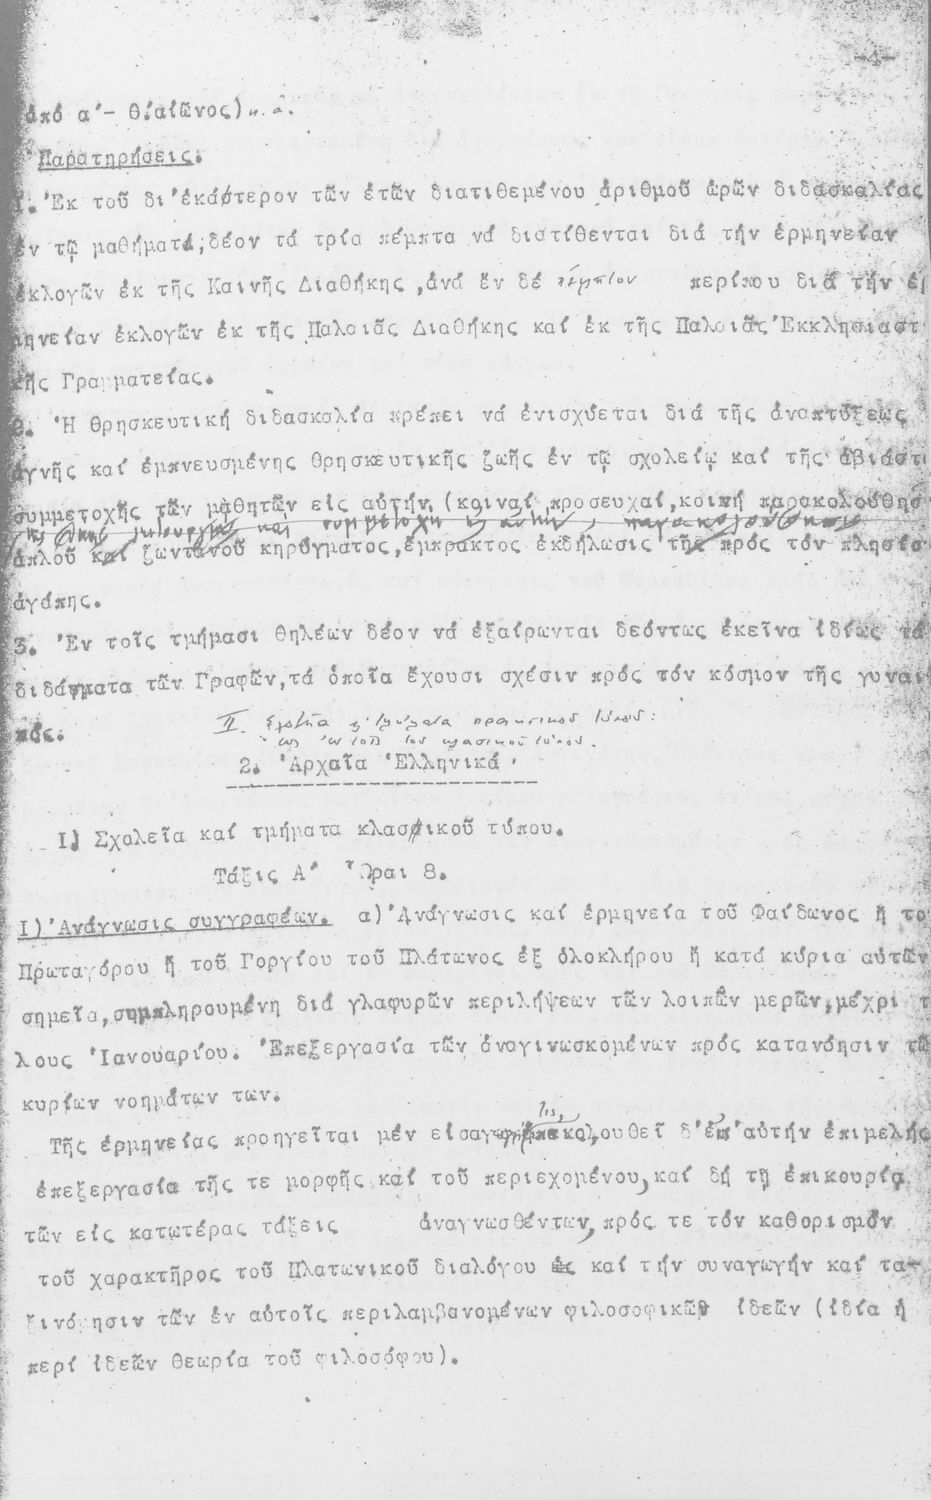 -4-
ἀπό α΄- Θ΄.αἰῶνος) κ.ἄ.
Παρατηρήσεις.
1. Ἐκ τοῦ δι'ἑκάστερον τῶν ἐτῶν διατιθεμένου ἀριθμοῦ ὡρῶν διδασκαλίας
ἐν τῷ μαθήματι, δέον τά τρία πέμπτα νά διατίθενται διά τήν ἑρμηνείαν
ἐκλογῶν ἐκ τῆς Καινῆς Διαθήκης, ἀνά ἕν δέ πέμπτον περίπου διά τήν ἑρ
μηνείαν ἐκλογῶν ἐκ τῆς Παλαιᾶς Διαθήκης καί ἐκ τῆς Παλαιᾶς Ἐκκλησιαστ
κῆς Γραμματείας.
2. Ἡ θρησκευτική διδασκαλία πρέπει νά ἐνισχύεται διά τῆς ἀναπτύξεως
ἁγνῆς καί ἐμπνευσμένης θρησκευτικῆς ζωῆς ἐν τῷ σχολείῳ καί τῆς ἀβιάστ
συμμετοχῆς τῶν μαθητῶν εἰς αὐτήν, (κοιναί προσευχαί, κοινή παρακολούθησ
τῆς θείας λειτουργίας καί συμμετοχή εἰς αὐτήν, παρακολούθησις
ἁπλοῦ καί ζωντανοῦ κηρύγματος, ἔμπρακτος ἐκδήλωσις τῆς πρός τόν πλησίο
ἀγάπης.
3. Ἐν τοῖς τμήμασι θηλέων δέον νά ἐξαίρωνται δεόντως ἐκεῖνα ἰδίως τά
διδάγματα τῶν Γραφῶν, τά ὁποῖα ἔχουσι σχέσιν πρός τόν κόσμον τῆς γυναι
κός.
II. Σχολεῖα καί τμήματα πρακτικοῦ τύπου:
ὡς ἐν τοῖς τοῦ κλασικοῦ τύπου.
2. Ἀρχαῖα Ἑλληνικά.
I) Σχολεῖα καί τμήματα κλασικοῦ τύπου.
Τάξις Α΄ Ὧραι 8.
I) Ἀνάγνωσις συγγραφέων. α) Ἀνάγνωσις καί ἑρμηνεία τοῦ Φαίδωνος ἤ το
Πρωταγόρου ἤ τοῦ Γοργίου τοῦ Πλάτωνος ἐξ ὁλοκλήρου ἤ κατά κύρια αὐτῶν
σημεῖα, συμπληρουμένη διά γλαφυρῶν περιλήψεων τῶν λοιπῶν μερῶν, μέχρι τ
λους Ἰανουαρίου. Ἐπεξεργασία τῶν ἀναγινωσκομένων πρός κατανόησιν τῶ
κυρίων νοημάτων των.
Τῆς ἑρμηνείας προηγεῖται μέν εἰσαγωγή τις, ἐπακολουθεῖ δ'ἐπ'αὐτήν ἐπιμελής
ἐπεξεργασία τῆς τε μορφῆς καί τοῦ περιεχομένου, καί δή τῇ ἐπικουρίᾳ
τῶν εἰς κατωτέρας τάξεις ἀναγνωσθέντων, πρός τε τόν καθορισμόν
τοῦ χαρακτῆρος τοῦ Πλατωνικοῦ διαλόγου ὡς καί τήν συναγωγήν καί τα-
ξινόμησιν τῶν ἐν αὐτοῖς περιλαμβανομένων φιλοσοφικῶν ἰδεῶν (ἰδίᾳ ἡ
περί ἰδεῶν θεωρία τοῦ φιλοσόφου).